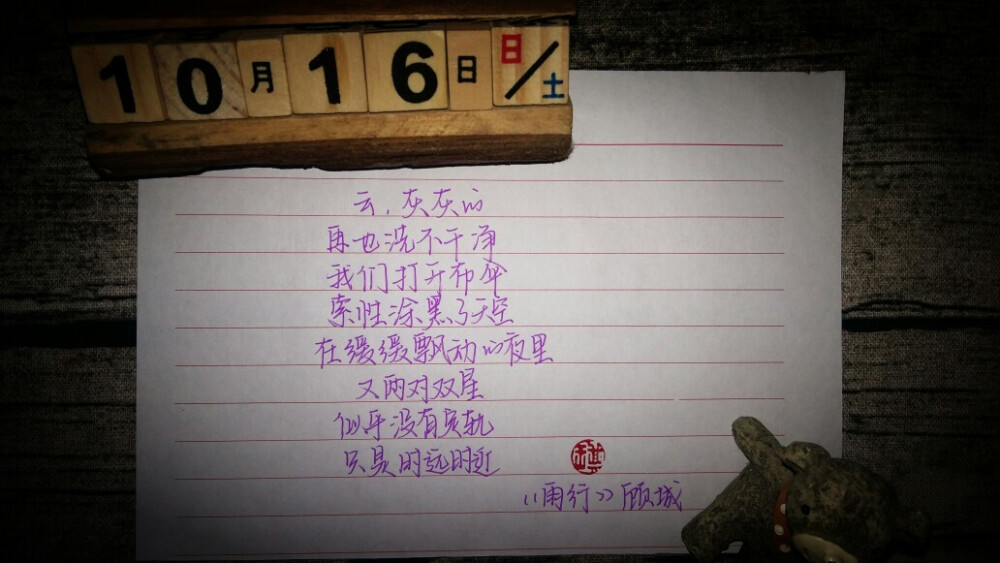 10月16日 日/土
云，灰灰的
再也洗不干净
我们打开布伞
索性涂黑了天空
在缓缓飘动的夜里
又两对双星
似乎没有定轨
只是时远时近
《雨行》顾城